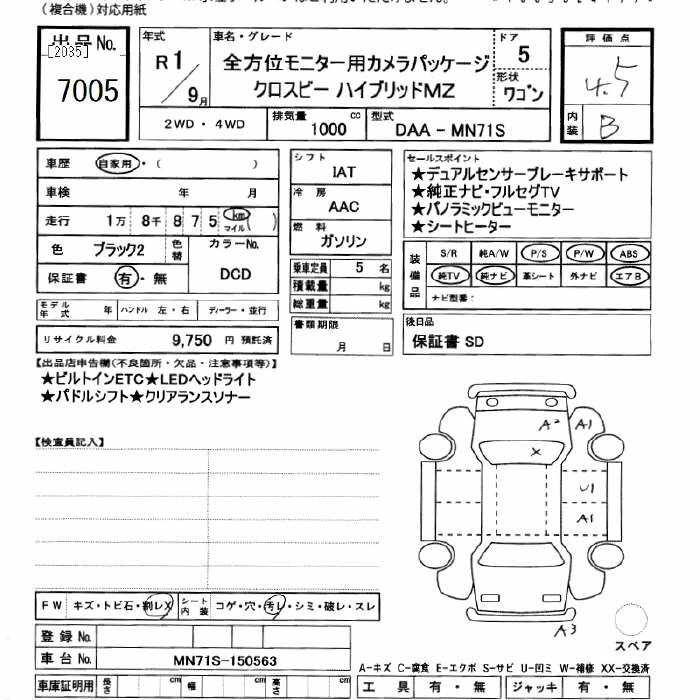 (複合機)対応用紙
出品No.
[2035]
7005
年式
R1/9月
車名・グレード
全方位モニター用カメラパッケージ
クロスビー ハイブリッドMZ
ドア
5
形状
ワゴン
評価点
4.5
内装
B
2WD・4WD
排気量
1000 cc
型式
DAA-MN71S
車歴
自家用・( )
車検 年 月
走行 1万 8千 8 7 5 km マイル ( )
色 ブラック2
色替
カラーNo.
DCD
保証書 有・無
シフト
IAT
冷房
AAC
燃料
ガソリン
乗車定員 5 名
積載量 kg
総重量 kg
書類期限
月 日
セールスポイント
★デュアルセンサーブレーキサポート
★純正ナビ・フルセグTV
★パノラミックビューモニター
★シートヒーター
装備品
S/R 純A/W P/S P/W ABS
純TV 純ナビ 革シート 外ナビ エアB
ナビ型番:
モデル年式 年 ハンドル 左・右 ディーラー・並行
リサイクル料金 9,750 円 預託済
後日品
保証書 SD
【出品店申告欄(不良箇所・欠品・注意事項等)】
★ビルトインETC★LEDヘッドライト
★パドルシフト★クリアランスソナー
【検査員記入】
A2 A1
X
U1
A1
A3
スペア
FW キズ・トビ石・割レX
シート内装 コゲ・穴・汚レ・シミ・破レ・スレ
登録No.
車台No. MN71S-150563
A-キズ C-腐食 E-エクボ S-サビ U-凹ミ W-補修 XX-交換済
車庫証明用 長さ cm 幅 cm 高さ cm
工具 有・無 ジャッキ 有・無